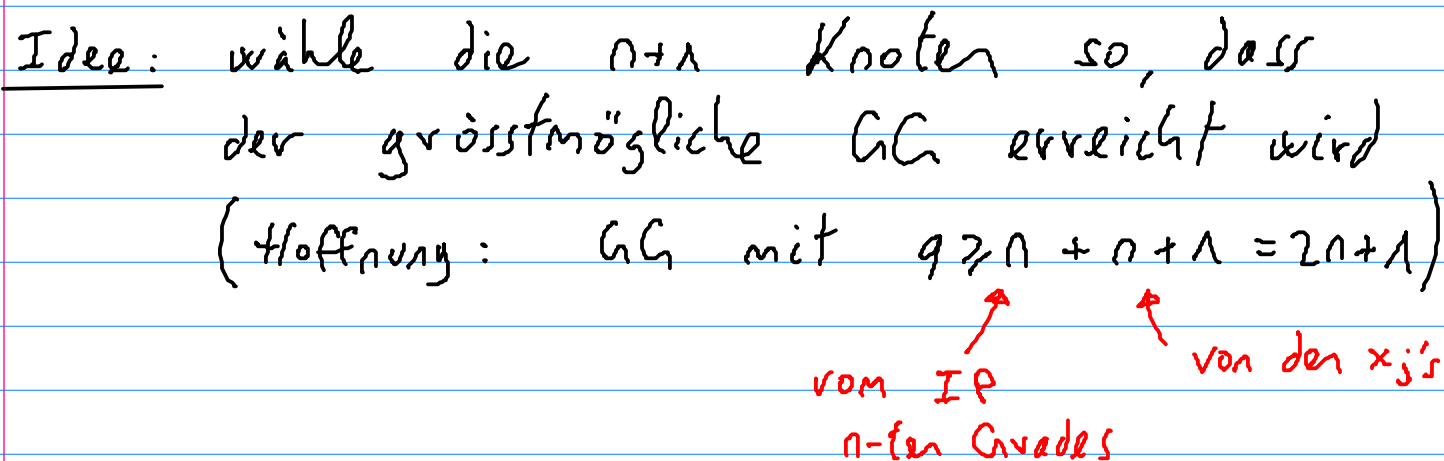 Idee: wähle die n+1 Knoten so, dass
der grösstmögliche GG erreicht wird
(Hoffnung: GG mit q ≥ n + n + 1 = 2n+1)
vom IP von den xj's
n-ten Grades